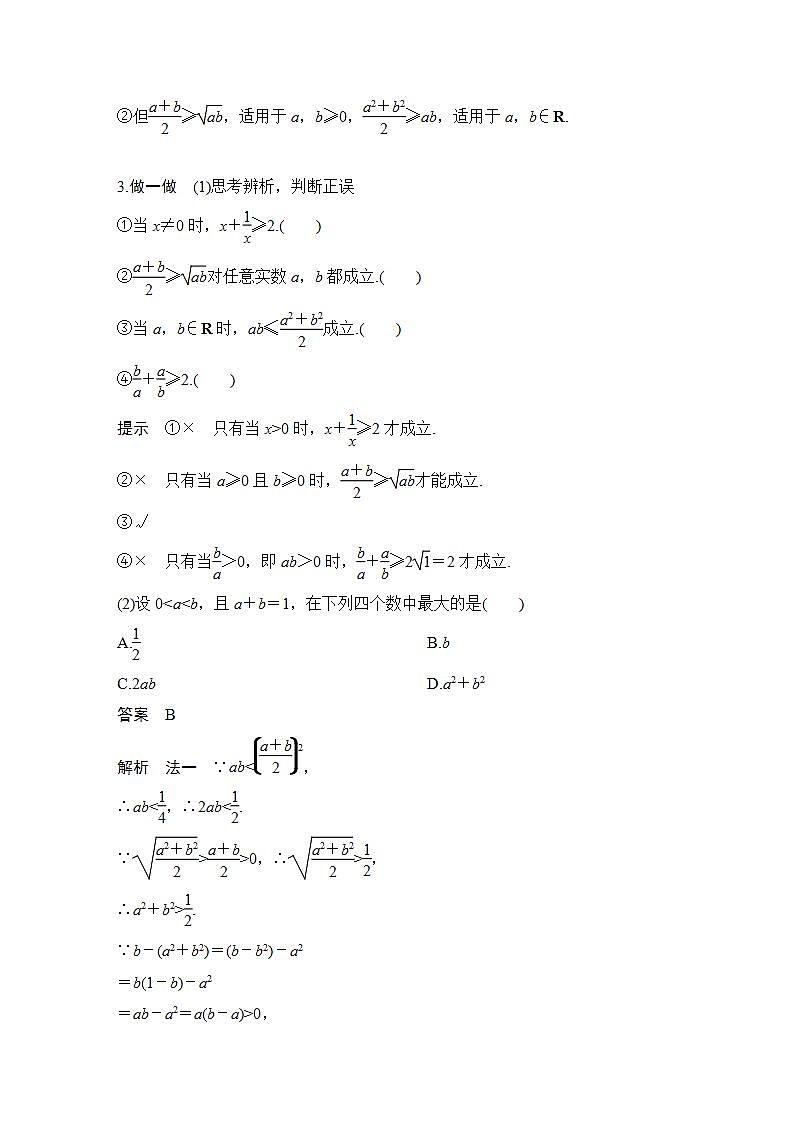 ②但\frac{a+b}{2}≥\sqrt{ab}，适用于 a，b≥0，\frac{a²+b²}{2}≥ab，适用于 a，b∈R.
3.做一做　(1)思考辨析，判断正误
①当 x≠0 时，x+\frac{1}{x}≥2.(　　)
②\frac{a+b}{2}≥\sqrt{ab}对任意实数 a，b 都成立.(　　)
③当 a，b∈R 时，ab≤\frac{a²+b²}{2}成立.(　　)
④\frac{b}{a}+\frac{a}{b}≥2.(　　)
提示　①×　只有当 x>0 时，x+\frac{1}{x}≥2 才成立.
②×　只有当 a≥0 且 b≥0 时，\frac{a+b}{2}≥\sqrt{ab}才能成立.
③√
④×　只有当\frac{b}{a}>0，即 ab>0 时，\frac{b}{a}+\frac{a}{b}≥2\sqrt{1}=2 才成立.
(2)设 0<a<b，且 a+b=1，在下列四个数中最大的是(　　)
A.\frac{1}{2}　B.b
C.2ab　D.a²+b²
答案　B
解析　法一　∵ab<(\frac{a+b}{2})²，
∴ab<\frac{1}{4}，∴2ab<\frac{1}{2}.
∵\sqrt{\frac{a²+b²}{2}}>\frac{a+b}{2}>0，∴\sqrt{\frac{a²+b²}{2}}>\frac{1}{2}，
∴a²+b²>\frac{1}{2}.
∵b-(a²+b²)=(b-b²)-a²
=b(1-b)-a²
=ab-a²=a(b-a)>0，